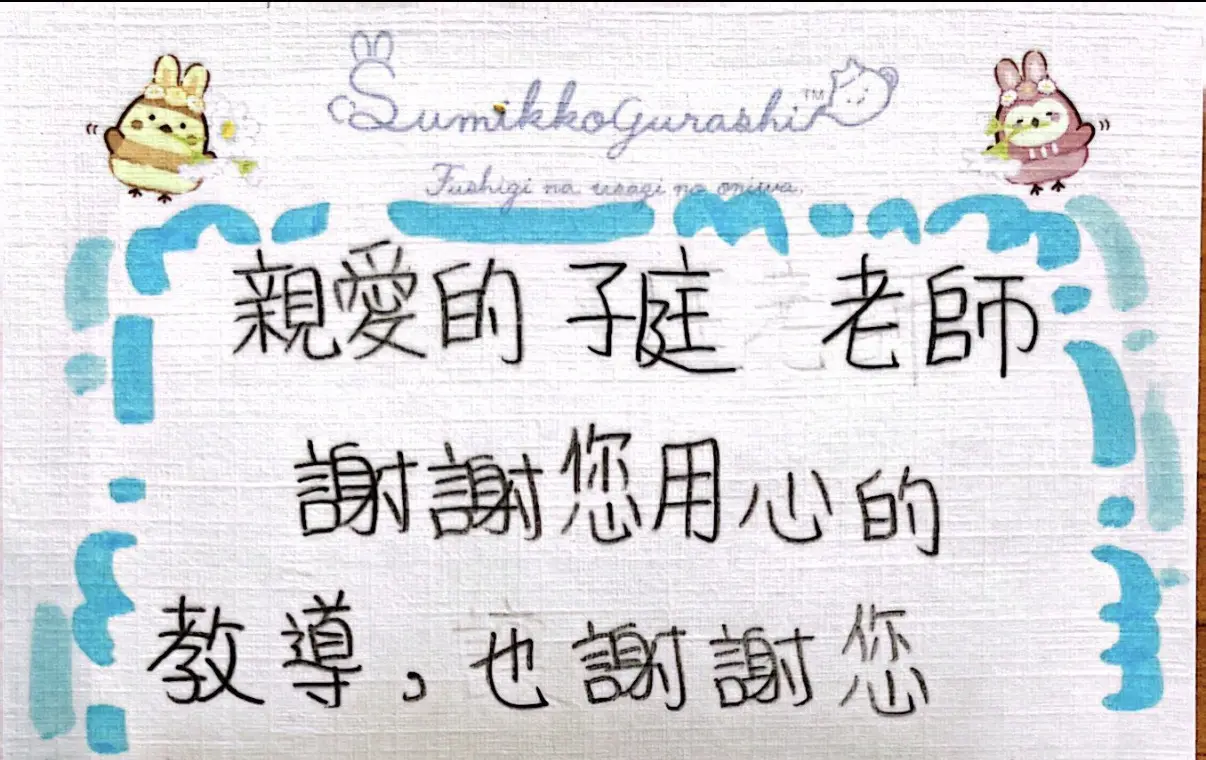 SumikkoGurashi™
Fushigi na usagi no oniwa.
親愛的 子庭 老師
謝謝您用心的
教導，也謝謝您